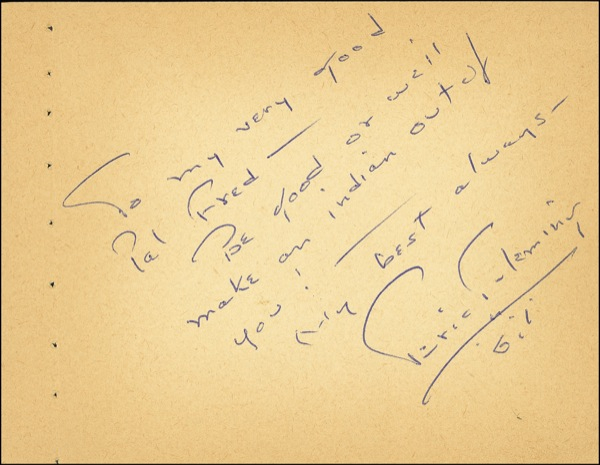 To my very good
Pal Fred —
Be good or we'll
make an indian out of
you! —
My best always -
Eric Fleming
Gil